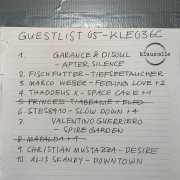 GUESTLIST 05-KLE036C
klausells
1. GARANCE & DISOUL
- AFTER SILENCE
2. FISCHFUTTER - TIEFSEETAUCHER
3. MARCO WEBER - FEELING LOVE +2
4. THADDEUS X - SPACE CAKE +1
5. PRINCESS TIABRAME + ELFO
6. STE58910 - SLOW DOWN +4
7. VALENTINO GUERRIERO
- SPIRE GARDEN
8. MAFALDA +1
9. CHRISTIAN MUSTAZZA - DESIRE
10. ALIS SKANDY - DOWNTOWN